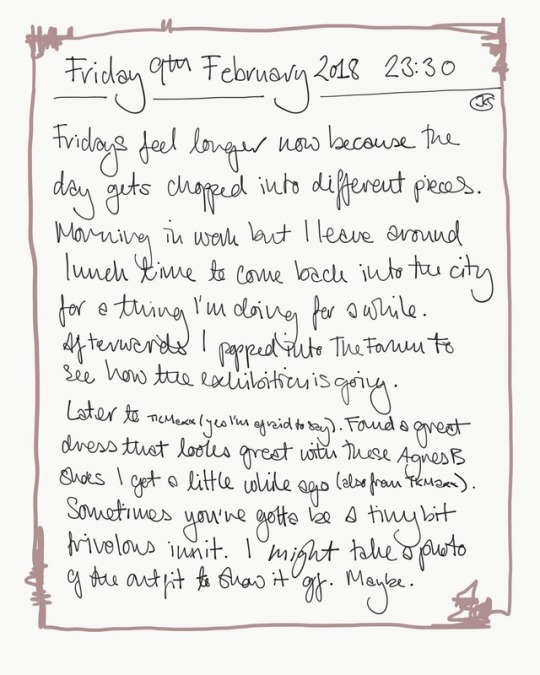 Friday 9th February 2018 23:30
JS
Fridays feel longer now because the
day gets chopped into different pieces.
Morning in work but I leave around
lunch time to come back into the city
for a thing I'm doing for a while.
Afterwards I popped into The Forum to
see how the exhibition is going.
Later to TKMaxx (yes I'm afraid to say). Found a great
dress that looks great with these Agnes B
shoes I got a little while ago (also from TKMaxx).
Sometimes you've gotta be a tiny bit
frivolous innit. I might take a photo
of the outfit to show it off. Maybe.